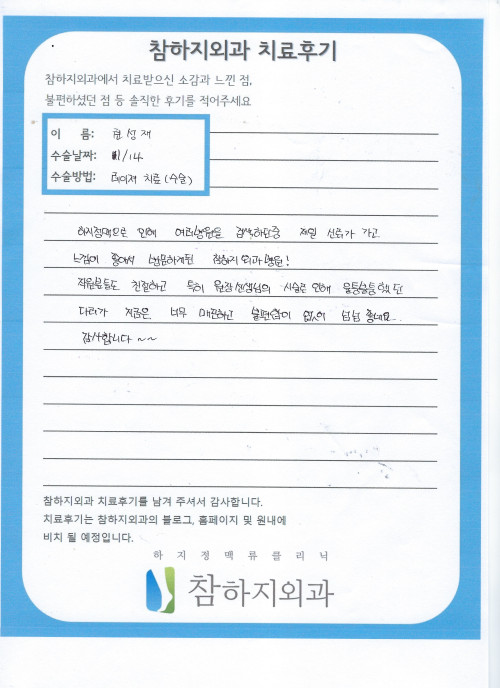 참하지외과 치료후기
참하지외과에서 치료받으신 소감과 느낀 점,
불편하셨던 점 등 솔직한 후기를 적어주세요
이 름: 현성재
수술날짜: 11/14
수술방법: 레이저 치료(수술)
하지정맥류로 인해 여러병원을 검색하던중 제일 신뢰가 가고
느낌이 좋아서 방문하게된 참하지외과병원!
직원분들도 친절하고 특히 원장선생님의 시술로 인해 울퉁불퉁했던
다리가 지금은 너무 매끈하고 불편함이 없어 넘넘 좋네요..
감사합니다 ~~
참하지외과 치료후기를 남겨 주셔서 감사합니다.
치료후기는 참하지외과의 블로그, 홈페이지 및 원내에
비치 될 예정입니다.
하지정맥류클리닉
참하지외과